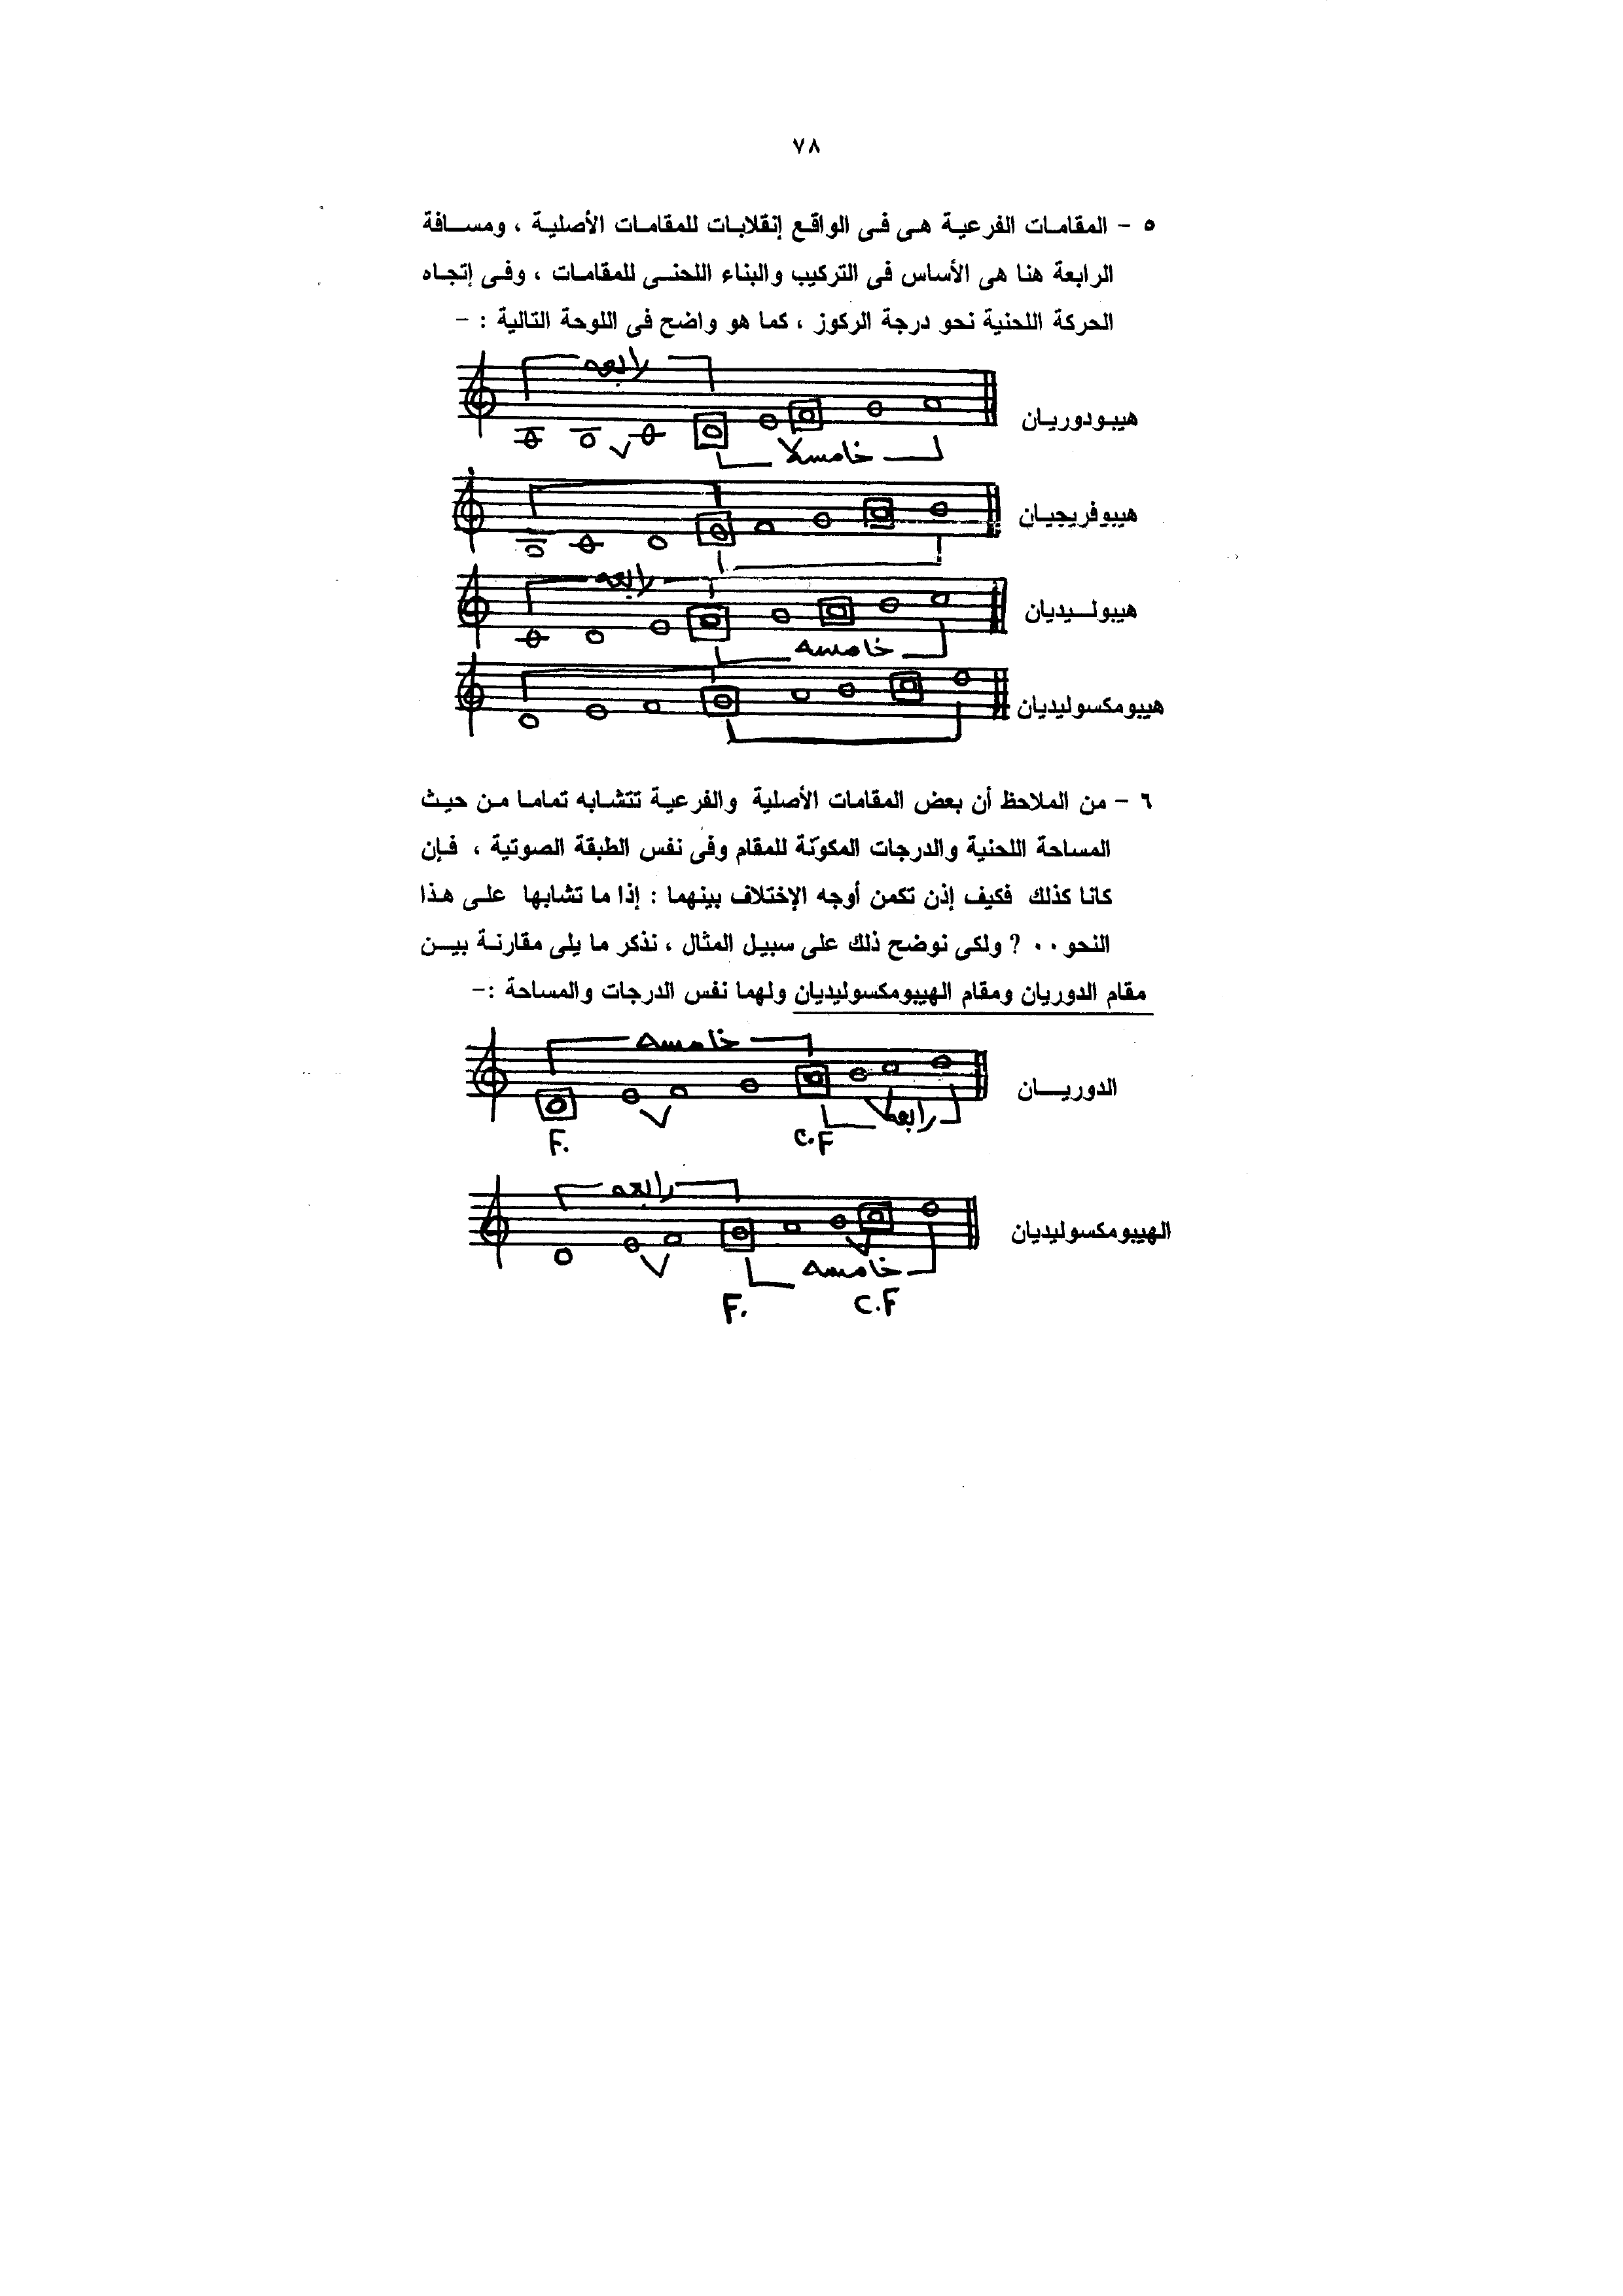 ٧٨
٥ - المقامات الفرعية هى فى الواقع إنقلابات للمقامات الأصلية ، ومسافة
الرابعة هنا هى الأساس فى التركيب والبناء اللحنى للمقامات ، وفى إتجاه
الحركة اللحنية نحو درجة الركوز ، كما هو واضح فى اللوحة التالية : -
رابعه
هيبودوريان
خامسه
هيبوفريجيان
رابعه
هيبوليديان
خامسه
هيبومكسوليديان
٦ - من الملاحظ أن بعض المقامات الأصلية والفرعية تتشابه تماما من حيث
المساحة اللحنية والدرجات المكونّة للمقام وفى نفس الطبقة الصوتية ، فإن
كانا كذلك فكيف إذن تكمن أوجه الإختلاف بينهما : إذا ما تشابها على هذا
النحو ٠٠ ? ولكى نوضح ذلك على سبيل المثال ، نذكر ما يلى مقارنة بين
مقام الدوريان ومقام الهيبومكسوليديان ولهما نفس الدرجات والمساحة :-
خامسه
الدوريان
رابعه
F. C.F
رابعه
الهيبومكسوليديان
خامسه
F. C.F